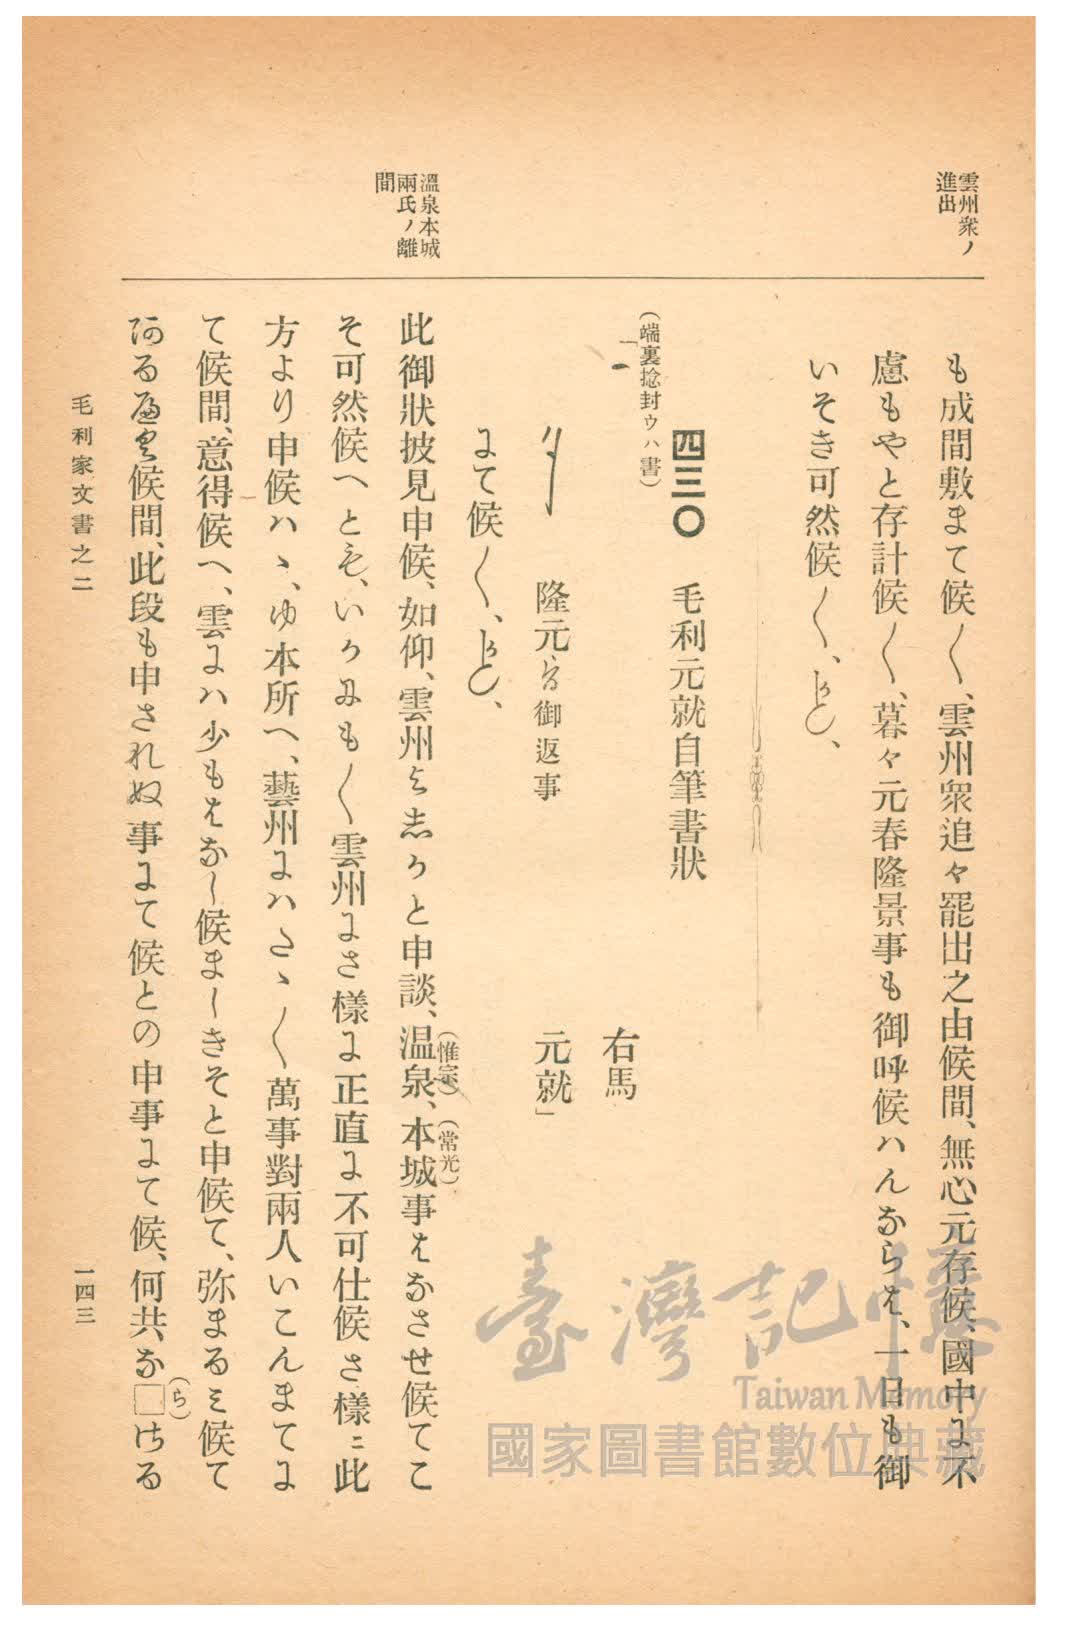 雲州衆ノ
進出
も成間敷まて候〱、雲州衆追々罷出之由候間、無心元存候、國中よ不
慮もやと存計候〱、暮々元春隆景事も御呼候ハんならは、一日も御
いそき可然候〱、
四三〇 毛利元就自筆書狀
(端裏捻封ウハ書)
右馬
隆元 御返事 元就」
よて候〱、
溫泉本城
兩氏ノ離
間
此御狀披見申候、如仰、雲州 志かと申談、温泉、本城事はなさせ候てこ
(惟宗) (常光)
そ可然候へとも、いかにも〱雲州よさ樣よ正直よ不可仕候さ樣ニ此
方より申候ハヽ、ゆ本所へ、藝州よハたゝ〱萬事對兩人いこんまてよ
て候間、意得候へ、雲よハ少もはなし候ましきそと申候て、弥まるミ候て
候間、此段も申されぬ事よて候との申事よて候、何共な□ける
(ら)
毛利家文書之二
一四三
臺灣記憶
Taiwan Memory
國家圖書館數位典藏